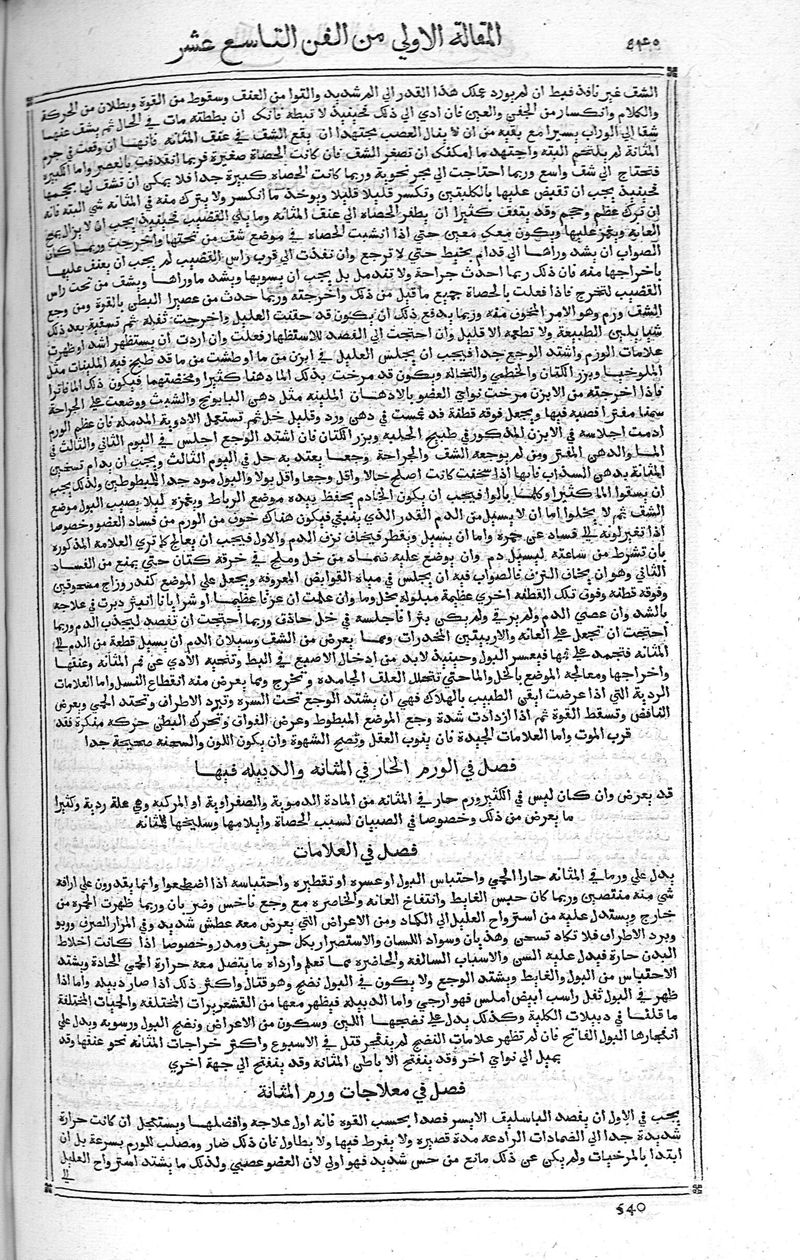 المقالة الاولي من الفن التاسع عشر
الشف غير نافذ فبط ان لم يورد عملك هذا القدر الي الم شديد والتوا من العنف وسقوط من القوة وبطلان من الحركة
والكلام وانكسار من الجفن والعين فان ادي الي ذلك فحينيذ لا تبطه فانك ان بططته مات في الحال ثم يشف عنها
شفا الي الوراب يسيرا مع بقيه من ان لا ينال العصب مجتهدا ان يقع الشف في عنف المثانة فانها ان وقعت في جرم
المثانة لم يلتحم البته واجتهد ما امكنك ان تصغر الشف فان كانت الحصاة صغيرة فربما انقذفت بالعصر واما الكبيرة
فتحتاج الي شف واسع وربما احتاجت الي مجر تجر به وربما كانت الحصاه كبيرة جدا فلا يمكن ان تشف لها بحجمها
فحينيذ يجب ان تقبض عليها بالكلبتين وتكسر قليلا قليلا ويوخذ ما انكسر ولا يترك منه في المثانه شي البته فانه
ان ترك عظم وحجم وقد يتفف كثيرا ان يظفر الحصاه الي عنف المثانة وما يلي القضيب فحينيذ يجب ان لا يزال يمسح
العانه ويغمز عليها ويكون معك معين حتي اذا انشبت الحصاه في موضع شف من تحتها واخرجت وربما كان
الصواب ان يشد وراها الي قدام بخيط حتي لا ترجع وان نفذت الي قرب راس القضيب لم يجب ان يعنف عليها
باخراجها منه فان ذلك ربما احدث جراحة ولا تندمل بل يجب ان يسويها ويشد ما وراها ويشف من تحت راس
القضيب لتخرج فاذا فعلت بالحصاة جميع ما قيل من ذلك واخرجته وربما حدث من عصرا البطن بالقوة ومن وجع
الشف ورم وهو الامر المخوف منه وربما يدفع ذلك ان يكون قد حقنت العليل واخرجت ثفله ثم تسقية بعد ذلك
شيا يلين الطبيعة ولا تطعمه الا قليل وان احتجت الي الفصد للاستظهار فعلت وان اردت ان يستظهر اشد او ظهرت
علامات الورم واشتد الوجع جدا فيجب ان يجلس العليل في ابزن من ما او طشت من ما قد طبخ فيه الملينات مثل
الملوخيا وبزر الكتان والخطمي والنخالة ويكون قد مرخت بذلك الما دهنا كثيرا ومخضتهما فيكون ذلك الما فاترا
فاذا اخرجته من الابزن مرخت نواي العضو بالادهان الملينه مثل دهن البابونج والشبث ووضعت علي الجراحة
سمنا مفترا فصبه فيها ويجعل فوقه قطنة قد غمست في دهن ورد وقليل خل ثم تستعمل الادوية المدمله فان عظم الورم
ادمت اجلاسه في الابزن المذكور في طبيخ الحلبه وبزر الكتان فان اشتد الوجع اجلس في اليوم الثاني والثالث في
الما والدهن المفتر ومن لم يوجعه الشف والجراحة وجعا يعتد به حل في اليوم الثالث ويجب ان يدام تسخين
المثانة بدهن السذاب فانها اذا سخنت كانت اصلح حالا واقل وجعا واقل بولا والبول مود جدا للمبطوطين ولذلك يجب
ان يسقوا الما كثيرا وكلما بالوا فيجب ان يكون الخادم يحفظ بيده موضع الرباط ويغمزه ليلا يصيب البول موضع
الشف ثم لا يخلوا اما ان لا يسيل من الدم القدر الذي ينبغي فيكون هناك خوف من الورم من فساد العضو وخصوصا
اذا تغير لونه الي فساد عن حمرة واما ان يسيل ويقطر فيخاف نزف الدم والاول فيجب ان يعالج كما تري العلامة المذكوره
بان تشرط من ساعته ليسيل دم وان يوضع عليه ضماد من خل وملح في خرقة كتان حتي يمنع من الفساد
الثاني وهو ان يخاف النزف فالصواب فيه ان يجلس في مياة القوابض المعروفه ويجعل علي الموضع كندر وزاج مسحوقين
وفوقه قطنه وفوق تلك القطنه اخري عظيمة مبلوله بخل وما وان علمت ان عرقا عظيما او شريانا انبثر دبرت في علاجه
بالشد وان عصي الدم ولم يرقي ولم يكن بترا فاجلسه في خل حاذق وربما احتجت ان تفصد ليجذب الدم وربما
احتجت ان تجعل علي العانه والاربيتين المخدرات ومما يعرض من الشف وسيلان الدم ان يسيل قطعة من الدم الي
المثانه فتجمد علي فمها فيعسر البول وحينيذ لا بد من ادخال الاصبع في البط وتنحيه الاذي عن فم المثانه وعنقها
واخراجها ومعالجه الموضع بالخل والما حتي يتحلل العلف الجامده وتخرج ومما يعرض منه انقطاع النسل واما العلامات
الردية التي اذا عرضت ايقن الطبيب بالهلاك فهي ان يشتد الوجع تحت السره وتبرد الاطراف وتحتد الحمي ويعرض
النافض وتسقط القوة ثم اذا ازدادت شدة وجع الموضع المبطوط وعرض الفواق وتحرك البطن حركة منكرة فقد
قرب الموت واما العلامات الجيدة فان يثوب العقل وتصح الشهوة وان يكون اللون والسحنه صحيحة جدا
فصل في الورم الحار في المثانه والدبيله فيها
قد يعرض وان كان ليس في الكثير ورم حار في المثانه من المادة الدموية والصفراوية او المركبه وهي علة ردية وكثيرا
ما يعرض من ذلك وخصوصا في الصبيان لسبب الحصاة وايلامها وسليخها للمثانه
فصل في العلامات
يدل علي ورم في المثانه حار الحمي واحتباس البول او عسره او تقطيره واحتباسه اذا اضطجعوا وانما يقدرون علي اراقة
شي منه منتصبين وربما كان حبس الغايط وانتفاخ العانه والخاصره مع وجع ناخس وضربان وربما ظهرت الحمره من
خارج ويستدل عليه من استرواح العليل الي الكماد ومن الاعراض التي يعرض معه عطش شديد وفي المرار الصرف وربو
وبرد الاطراف فلا تكاد تسخن وهذيان وسواد اللسان والاستضرار بكل حريف ومدر وخصوصا اذا كانت اخلاط
البدن حارة فيدل عليه السن والاسباب السالفه والحاضره مما تعلم وارداه ما يتصل معه حرارة الحمي الحادة ويشتد
الاحتباس من البول والغايط ويشتد الوجع ولا يكون في البول نضج وهو قتال واكثر ذلك اذا صار دبيله واما اذا
ظهر في البول ثفل راسب ابيض املس فهو ارجي واما الدبيله فيظهر معها من القشعريرات المختلفه والحميات المختلفة
ما قلنا في دبيلات الكلية وكذلك يدل علي نضجها اللين وسكون من الاعراض ونضج البول ورسوبه ويدل علي
انفجارها البول القايح فان لم تظهر علامات النضج لم ينفجر قتل في الاسبوع واكثر خراجات المثانه نحو عنقها وقد
يميل الي نواي اخر وقد ينفتح الا باطن المثانة وقد ينفتح الي جهة اخري
فصل في معلاجات ورم المثانة
يجب في الاول ان يفصد الباسليف الايسر فصدا بحسب القوه فانه اول علاجه وافضلها ويستعجل ان كانت حرارة
شديدة جدا الي الضمادات الرادعة مدة قصيره ولا يفرط فيها ولا يطاول فان ذلك ضار ومصلب للورم بسرعة بل ان
ابتدا بالمرخيات ولم يكن عن ذلك مانع من حس شديد فهو اولي لان العضو عصبي ولذلك ما يشتد استرواح العليل
الي
540